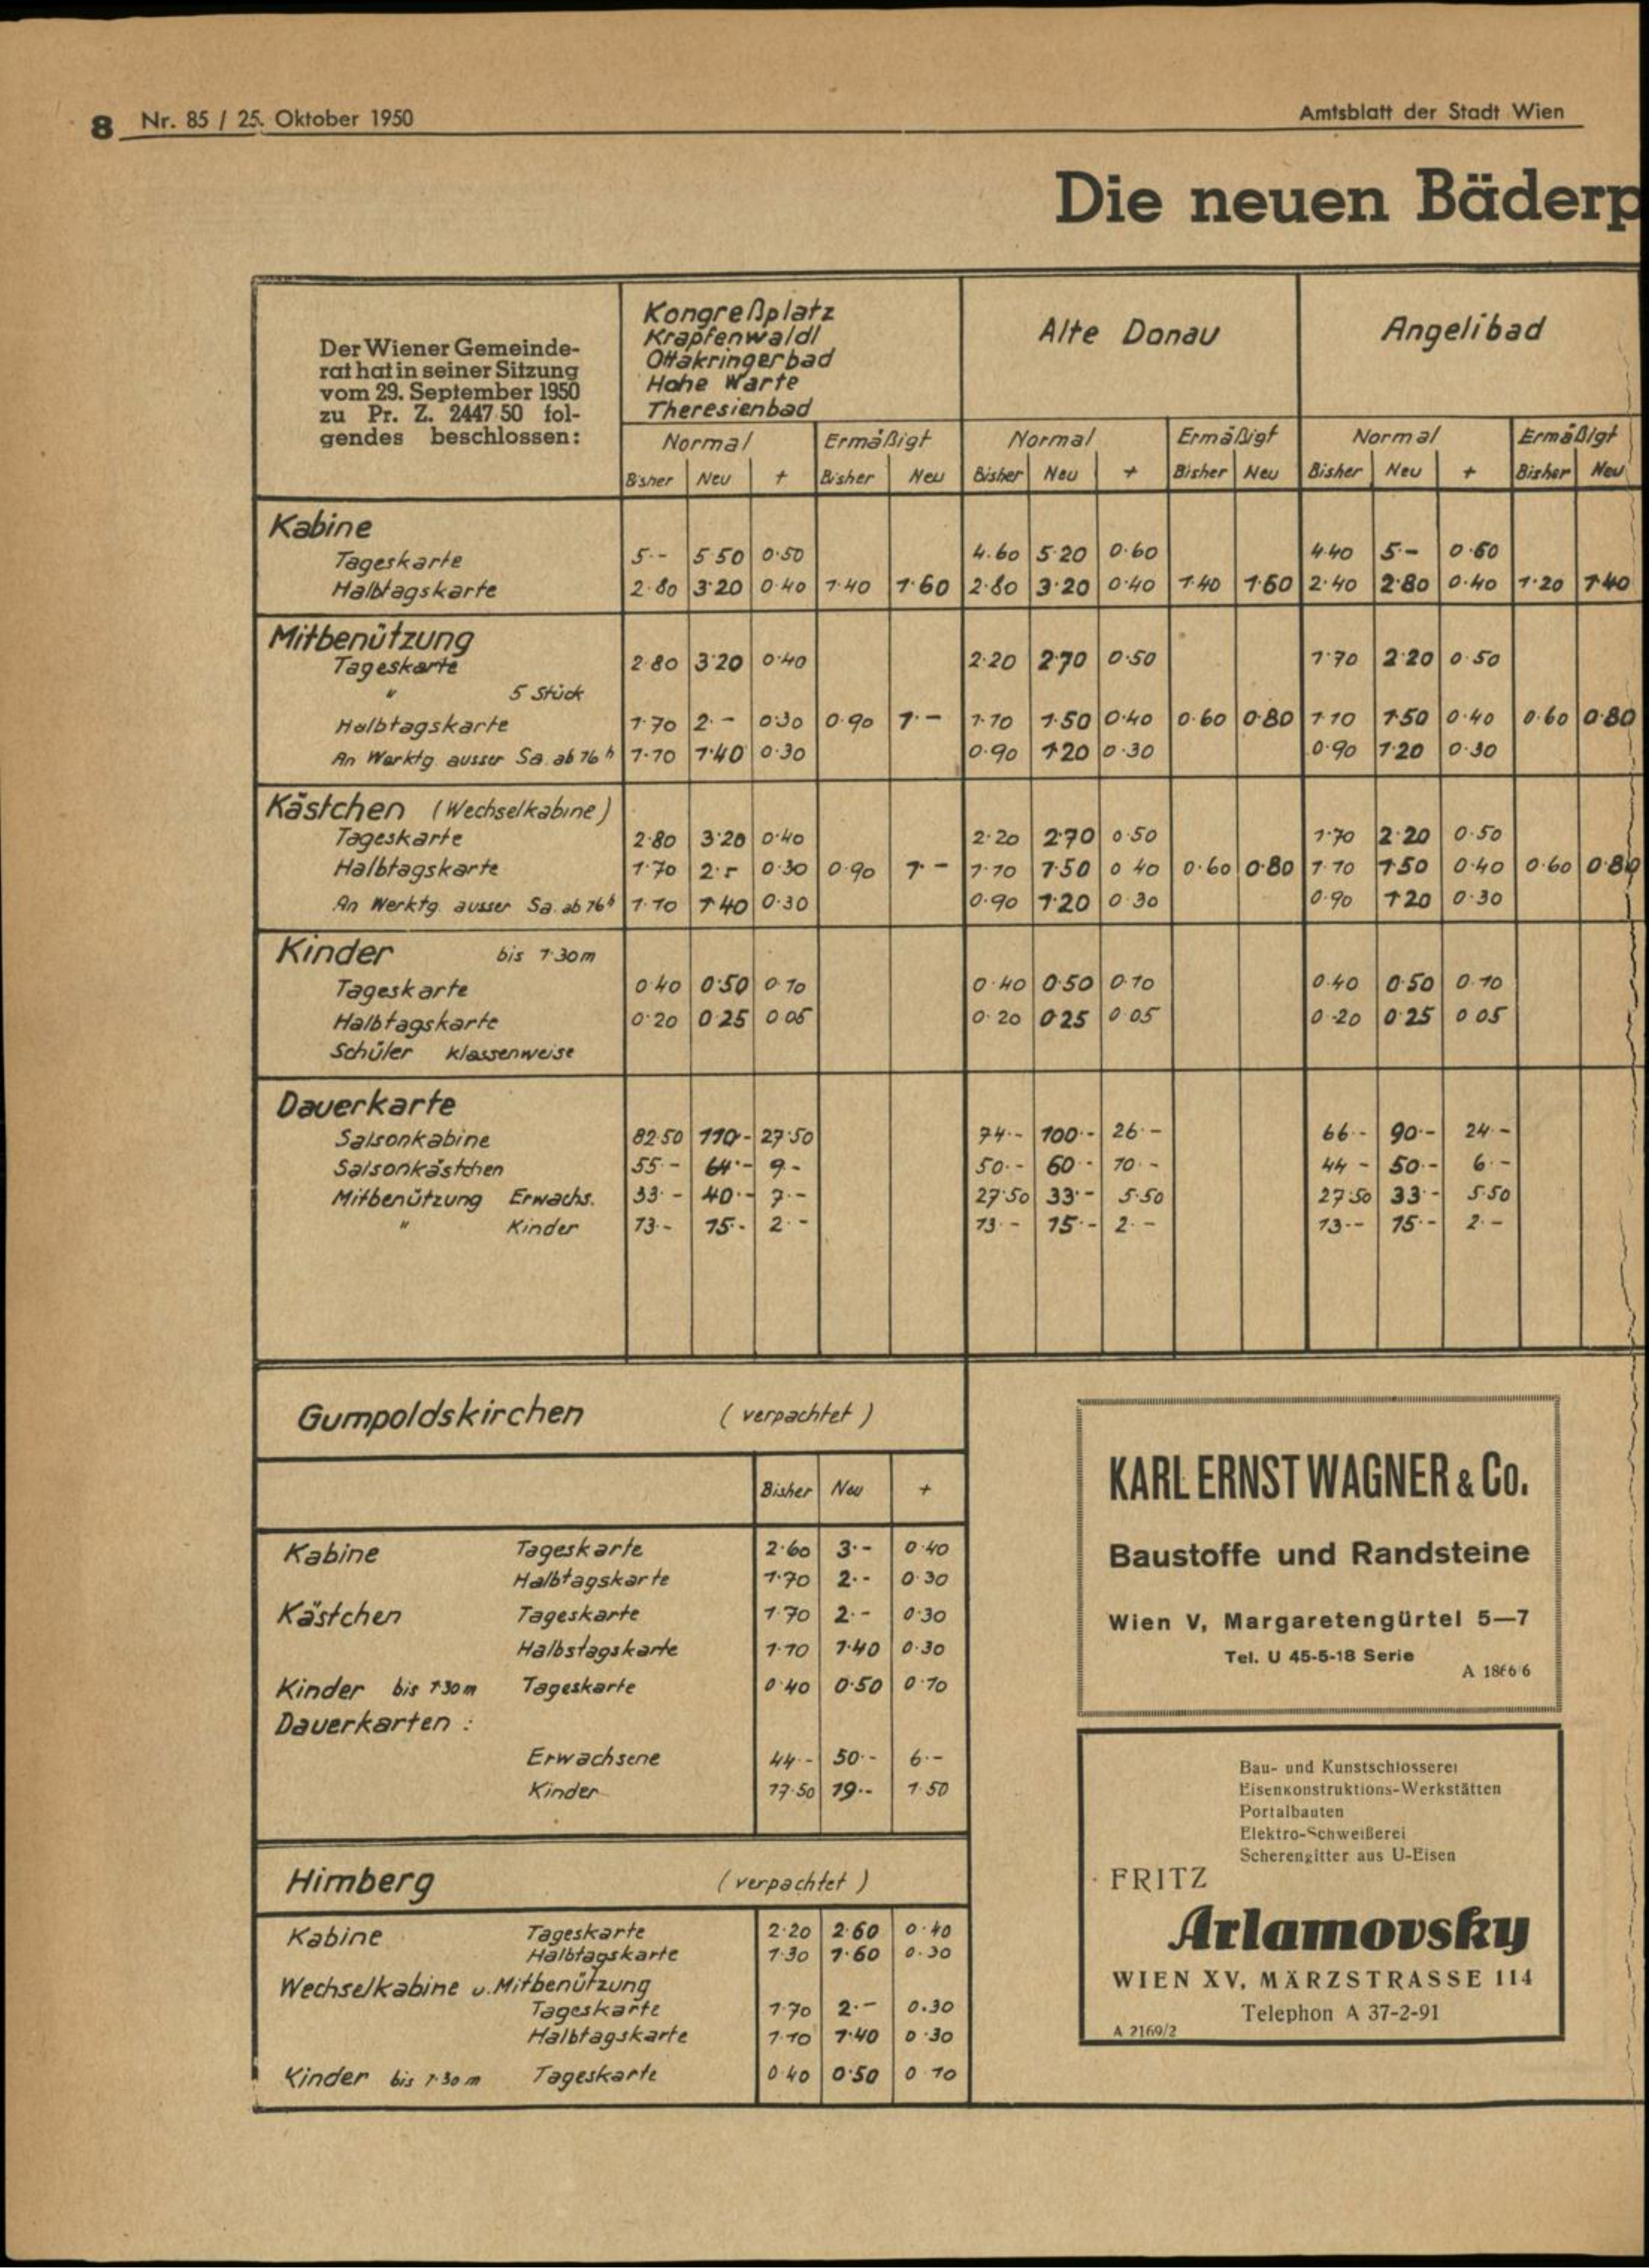 8 Nr. 85 / 25. Oktober 1950 Amtsblatt der Stadt Wien
Die neuen Bäderp
Der Wiener Gemeinde-
rat hat in seiner Sitzung
vom 29. September 1950
zu Pr. Z. 2447 50 fol-
gendes beschlossen:
Kongreßplatz
Krapfenwaldl
Ottakringerbad
Hohe Warte
Theresienbad
Alte Donau
Angelibad
Normal Ermäßigt Normal Ermäßigt Normal Ermäßigt
Bisher Neu + Bisher Neu Bisher Neu + Bisher Neu Bisher Neu + Bisher Neu
Kabine
Tageskarte 5·- 5 50 0·50 4.60 5·20 0·60 4·40 5·- 0·60
Halbtagskarte 2·80 3·20 0·40 1·40 1·60 2·80 3·20 0·40 1·40 1·60 2·40 2·80 0·40 1·20 1·40
Mitbenützung
Tageskarte 2·80 3·20 0·40 2·20 2·70 0·50 1·70 2·20 0·50
" 5 Stück
Halbtagskarte 1·70 2·- 0·30 0·90 1·- 1·10 1·50 0·40 0·60 0·80 1·10 1·50 0·40 0·60 0·80
An Werktg. ausser Sa. ab 16 h 1·10 1·40 0·30 0·90 1·20 0·30 0·90 1·20 0·30
Kästchen (Wechselkabine)
Tageskarte 2·80 3·20 0·40 2·20 2·70 0·50 1·70 2·20 0·50
Halbtagskarte 1·70 2·- 0·30 0·90 1·- 1·10 1·50 0·40 0·60 0·80 1·10 1·50 0·40 0·60 0·80
An Werktg. ausser Sa. ab 16 h 1·10 1·40 0·30 0·90 1·20 0·30 0·90 1·20 0·30
Kinder bis 1·30m
Tageskarte 0·40 0·50 0·10 0·40 0·50 0·10 0·40 0·50 0·10
Halbtagskarte 0·20 0·25 0·05 0·20 0·25 0·05 0·20 0·25 0·05
Schüler klassenweise
Dauerkarte
Saisonkabine 82·50 110·- 27·50 74·- 100·- 26·- 66·- 90·- 24·-
Saisonkästchen 55·- 64·- 9·- 50·- 60·- 10·- 44·- 50·- 6·-
Mitbenützung Erwachs. 33·- 40·- 7·- 27·50 33·- 5·50 27·50 33·- 5·50
" Kinder 13·- 15·- 2·- 13·- 15·- 2·- 13·- 15·- 2·-
Gumpoldskirchen (verpachtet)
Bisher Neu +
Kabine Tageskarte 2·60 3·- 0·40
Halbtagskarte 1·70 2·- 0·30
Kästchen Tageskarte 1·70 2·- 0·30
Halbstagskarte 1·10 1·40 0·30
Kinder bis 1·30m Tageskarte 0·40 0·50 0·10
Dauerkarten :
Erwachsene 44·- 50·- 6·-
Kinder 17·50 19·- 1·50
Himberg (verpachtet)
Kabine Tageskarte 2·20 2·60 0·40
Halbtagskarte 1·30 1·60 0·30
Wechselkabine u. Mitbenützung
Tageskarte 1·70 2·- 0.30
Halbtagskarte 1·10 1·40 0·30
Kinder bis 1·30m Tageskarte 0·40 0·50 0·10
KARL ERNST WAGNER & Co.
Baustoffe und Randsteine
Wien V, Margaretengürtel 5—7
Tel. U 45-5-18 Serie
A 1866/6
Bau- und Kunstschlosserei
Eisenkonstruktions-Werkstätten
Portalbauten
Elektro-Schweißerei
Scherengitter aus U-Eisen
FRITZ
Arlamovsky
WIEN XV, MÄRZSTRASSE 114
Telephon A 37-2-91
A 2169/2